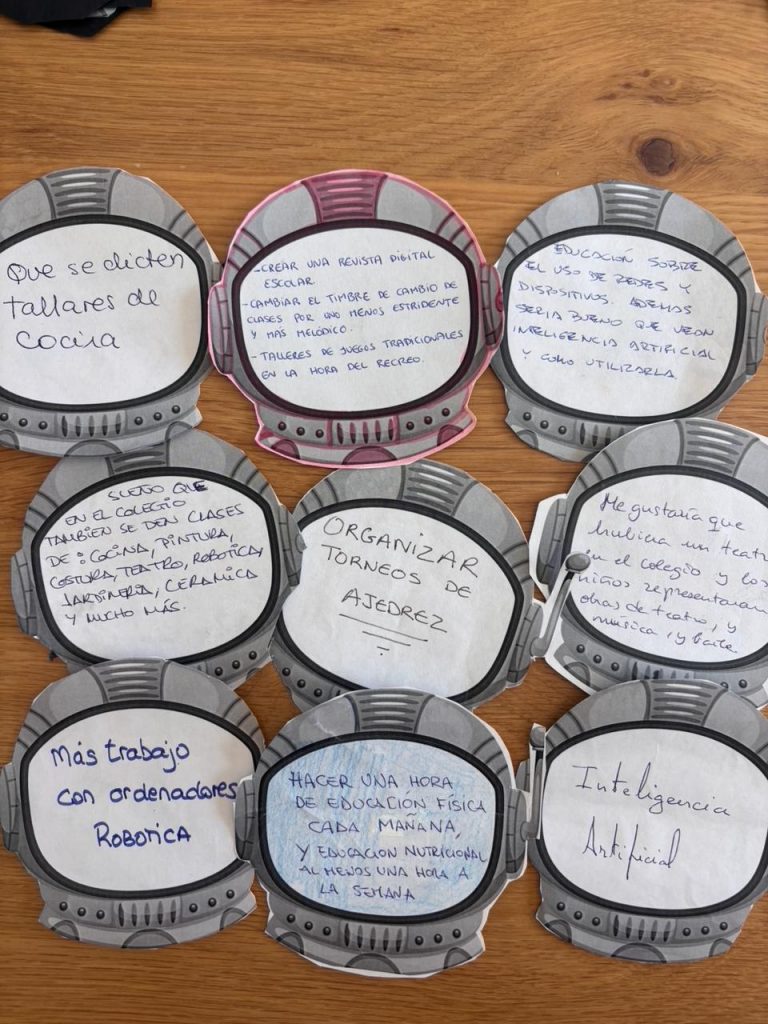 Que se dicten
tallares de
cocina
- CREAR UNA REVISTA DIGITAL
ESCOLAR.
- CAMBIAR EL TIMBRE DE CAMBIO DE
CLASES POR UNO MENOS ESTRIDENTE
Y MÁS MELÓDICO.
- TALLERES DE JUEGOS TRADICIONALES
EN LA HORA DEL RECREO.
EDUCACIÓN SOBRE
EL USO DE REDES Y
DISPOSITIVOS. ADEMAS
SERIA BUENO QUE VEAN
INTELIGENCIA ARTIFICIAL
Y COMO UTILIZARLA.
SUEÑO QUE
EN EL COLEGIO
TAMBIEN SE DEN CLASES
DE: COCINA, PINTURA,
COSTURA, TEATRO, ROBOTICA,
JARDINERIA, CERAMICA
Y MUCHO MÁS.
ORGANIZAR
TORNEOS DE
AJEDREZ
Me gustaría que
hubiera un teatr
en el colegio y los
niños representaran
obras de teatro, y
música, y baile.
Más trabajo
con ordenadores
ROBOTICA
HACER UNA HORA
DE EDUCACIÓN FÍSICA
CADA MAÑANA,
Y EDUCACION NUTRICIONAL
AL MENOS UNA HORA A
LA SEMANA
Inteligencia
Artificial